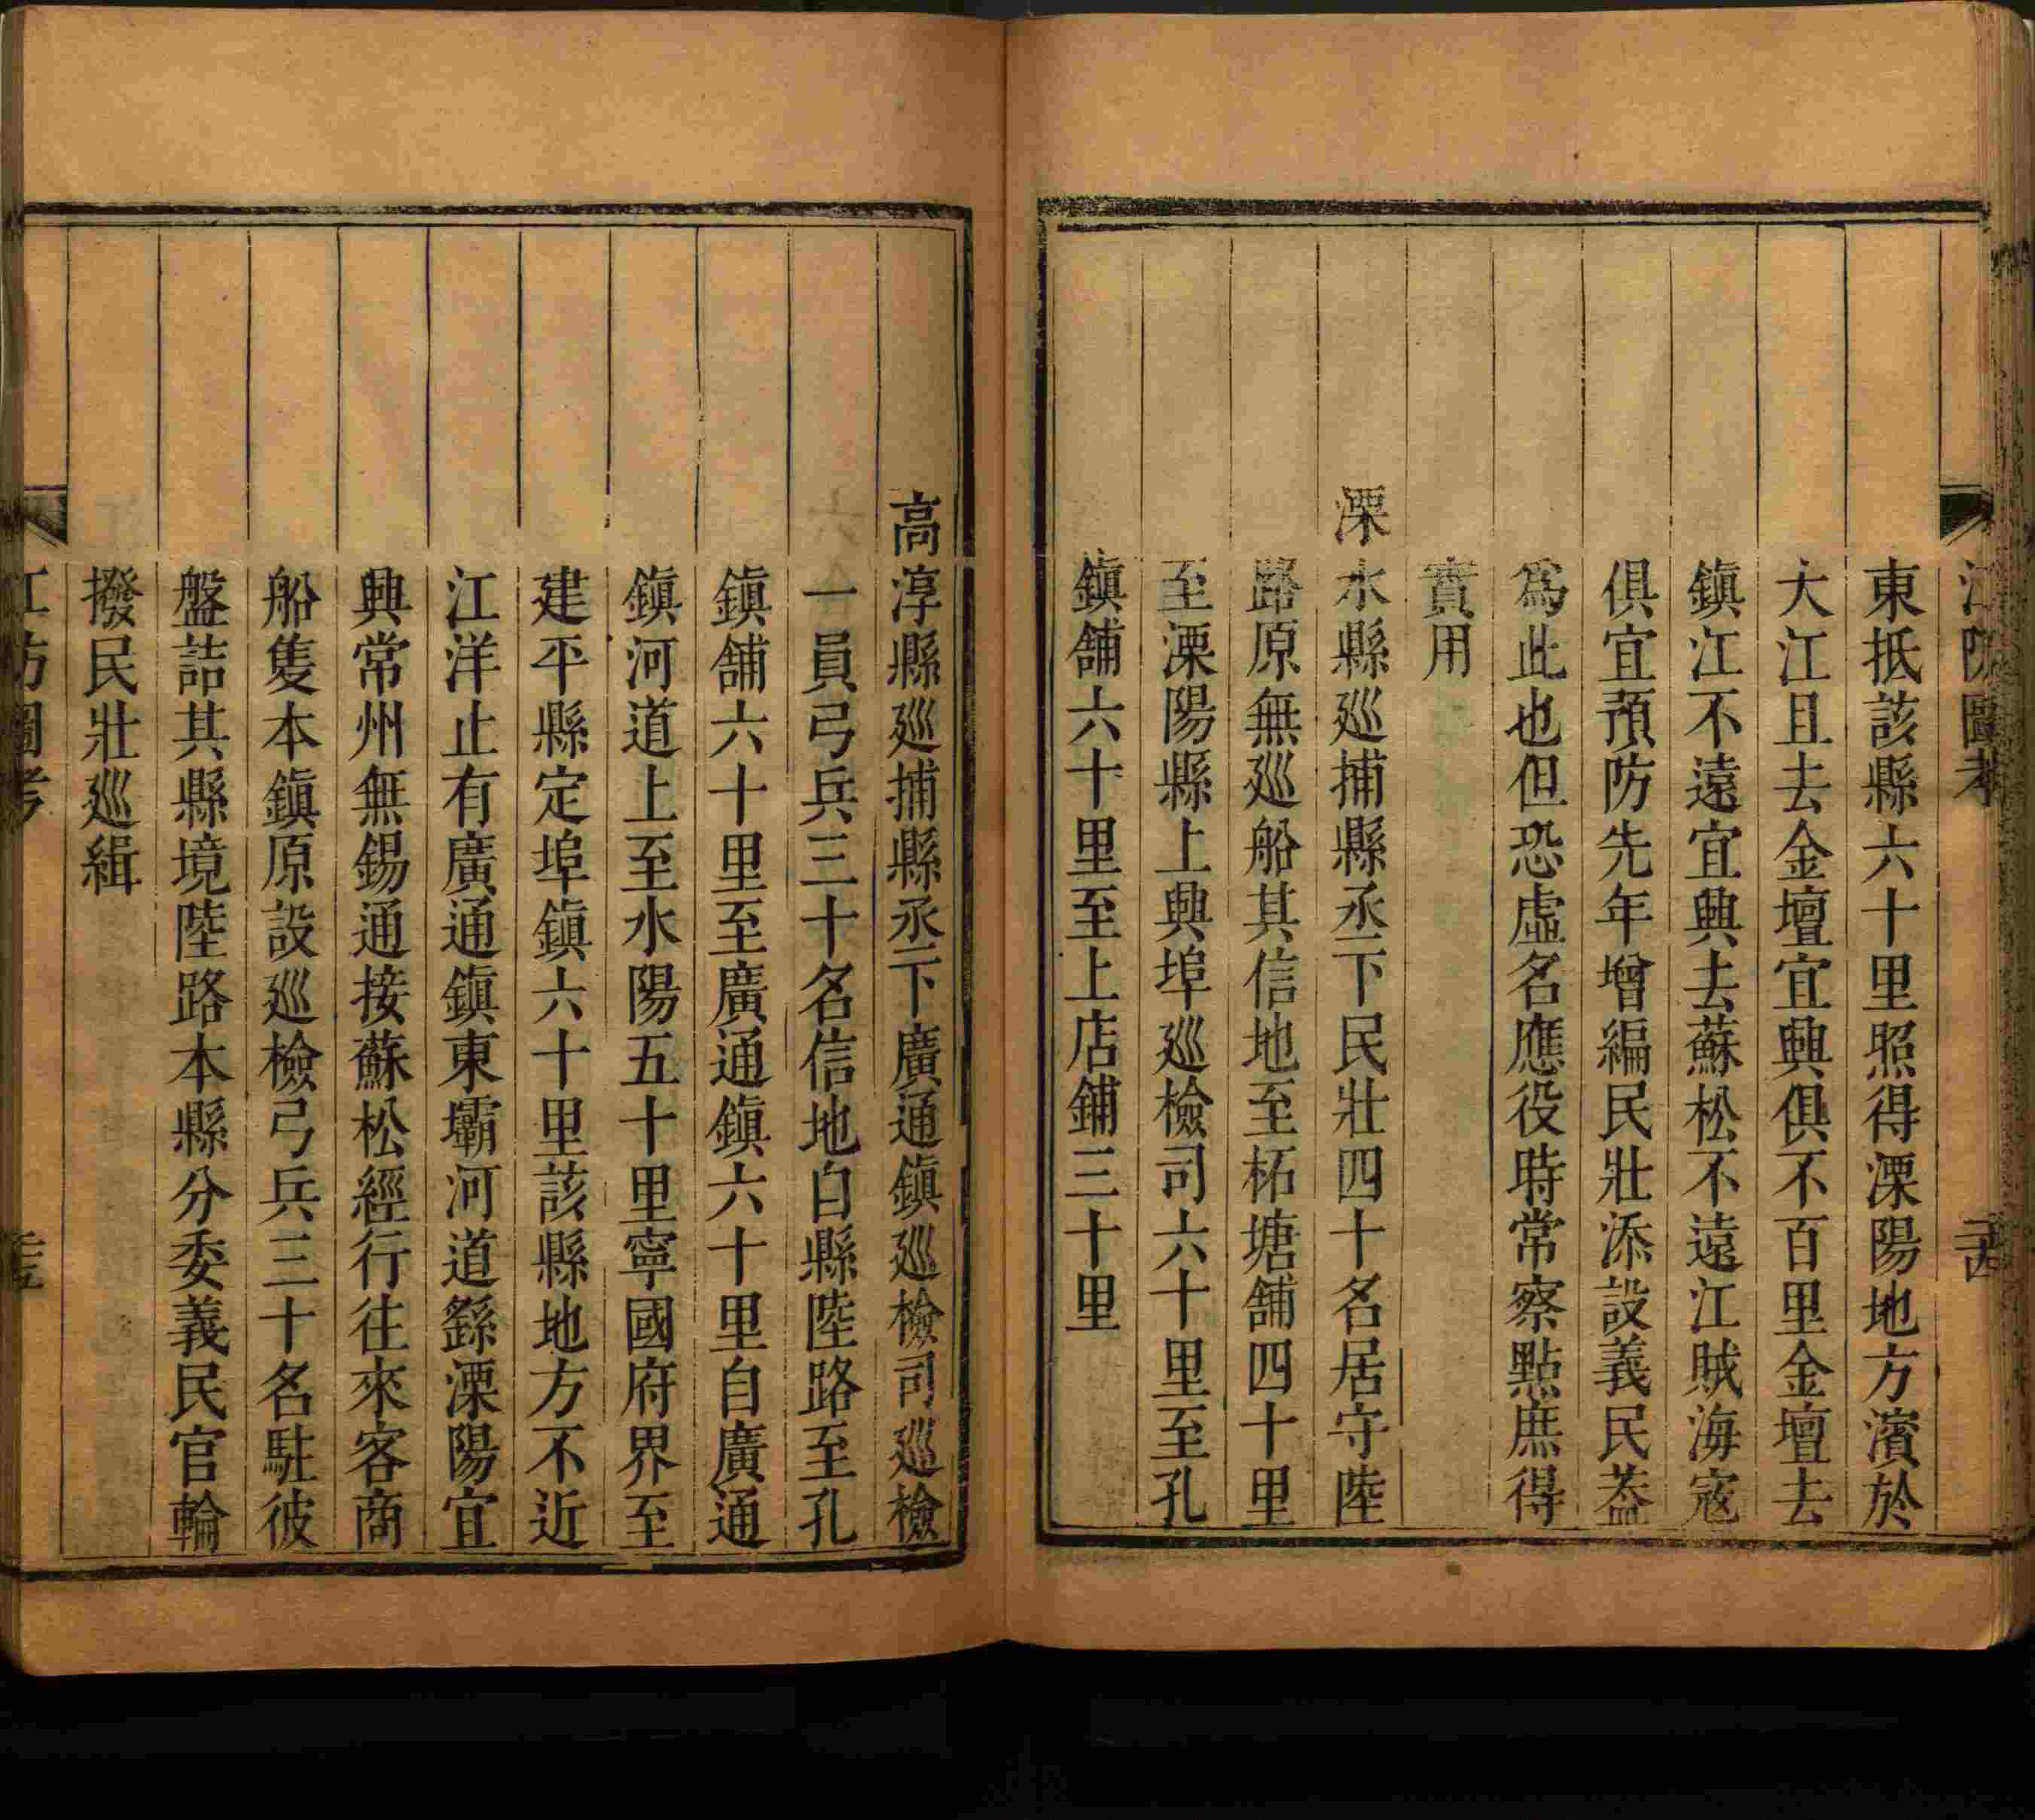 江防圖考
二十四
東抵該縣六十里照得溧陽地方濱於
大江且去金壇宜興俱不百里金壇去
鎮江不遠宜興去蘇松不遠江賊海寇
俱宜預防先年增編民壯添設義民葢
爲此也但恐虛名應役時常察點庶得
實用
溧水縣廵捕縣丞下民壯四十名居守陸
路原無廵船其信地至柘塘舖四十里
至溧陽縣上興埠廵檢司六十里至孔
鎮舖六十里至上店鋪三十里
高淳縣廵捕縣丞下廣通鎮廵檢司廵檢
一員弓兵三十名信地自縣陸路至孔
鎮舖六十里至廣通鎮六十里自廣通
鎮河道上至水陽五十里寧國府界至
建平縣定埠鎮六十里該縣地方不近
江洋止有廣通鎮東壩河道繇溧陽宜
興常州無錫通接蘇松經行往來客商
船隻本鎮原設廵檢弓兵三十名駐彼
盤詰其縣境陸路本縣分委義民官輪
撥民壯廵緝
江防圖考